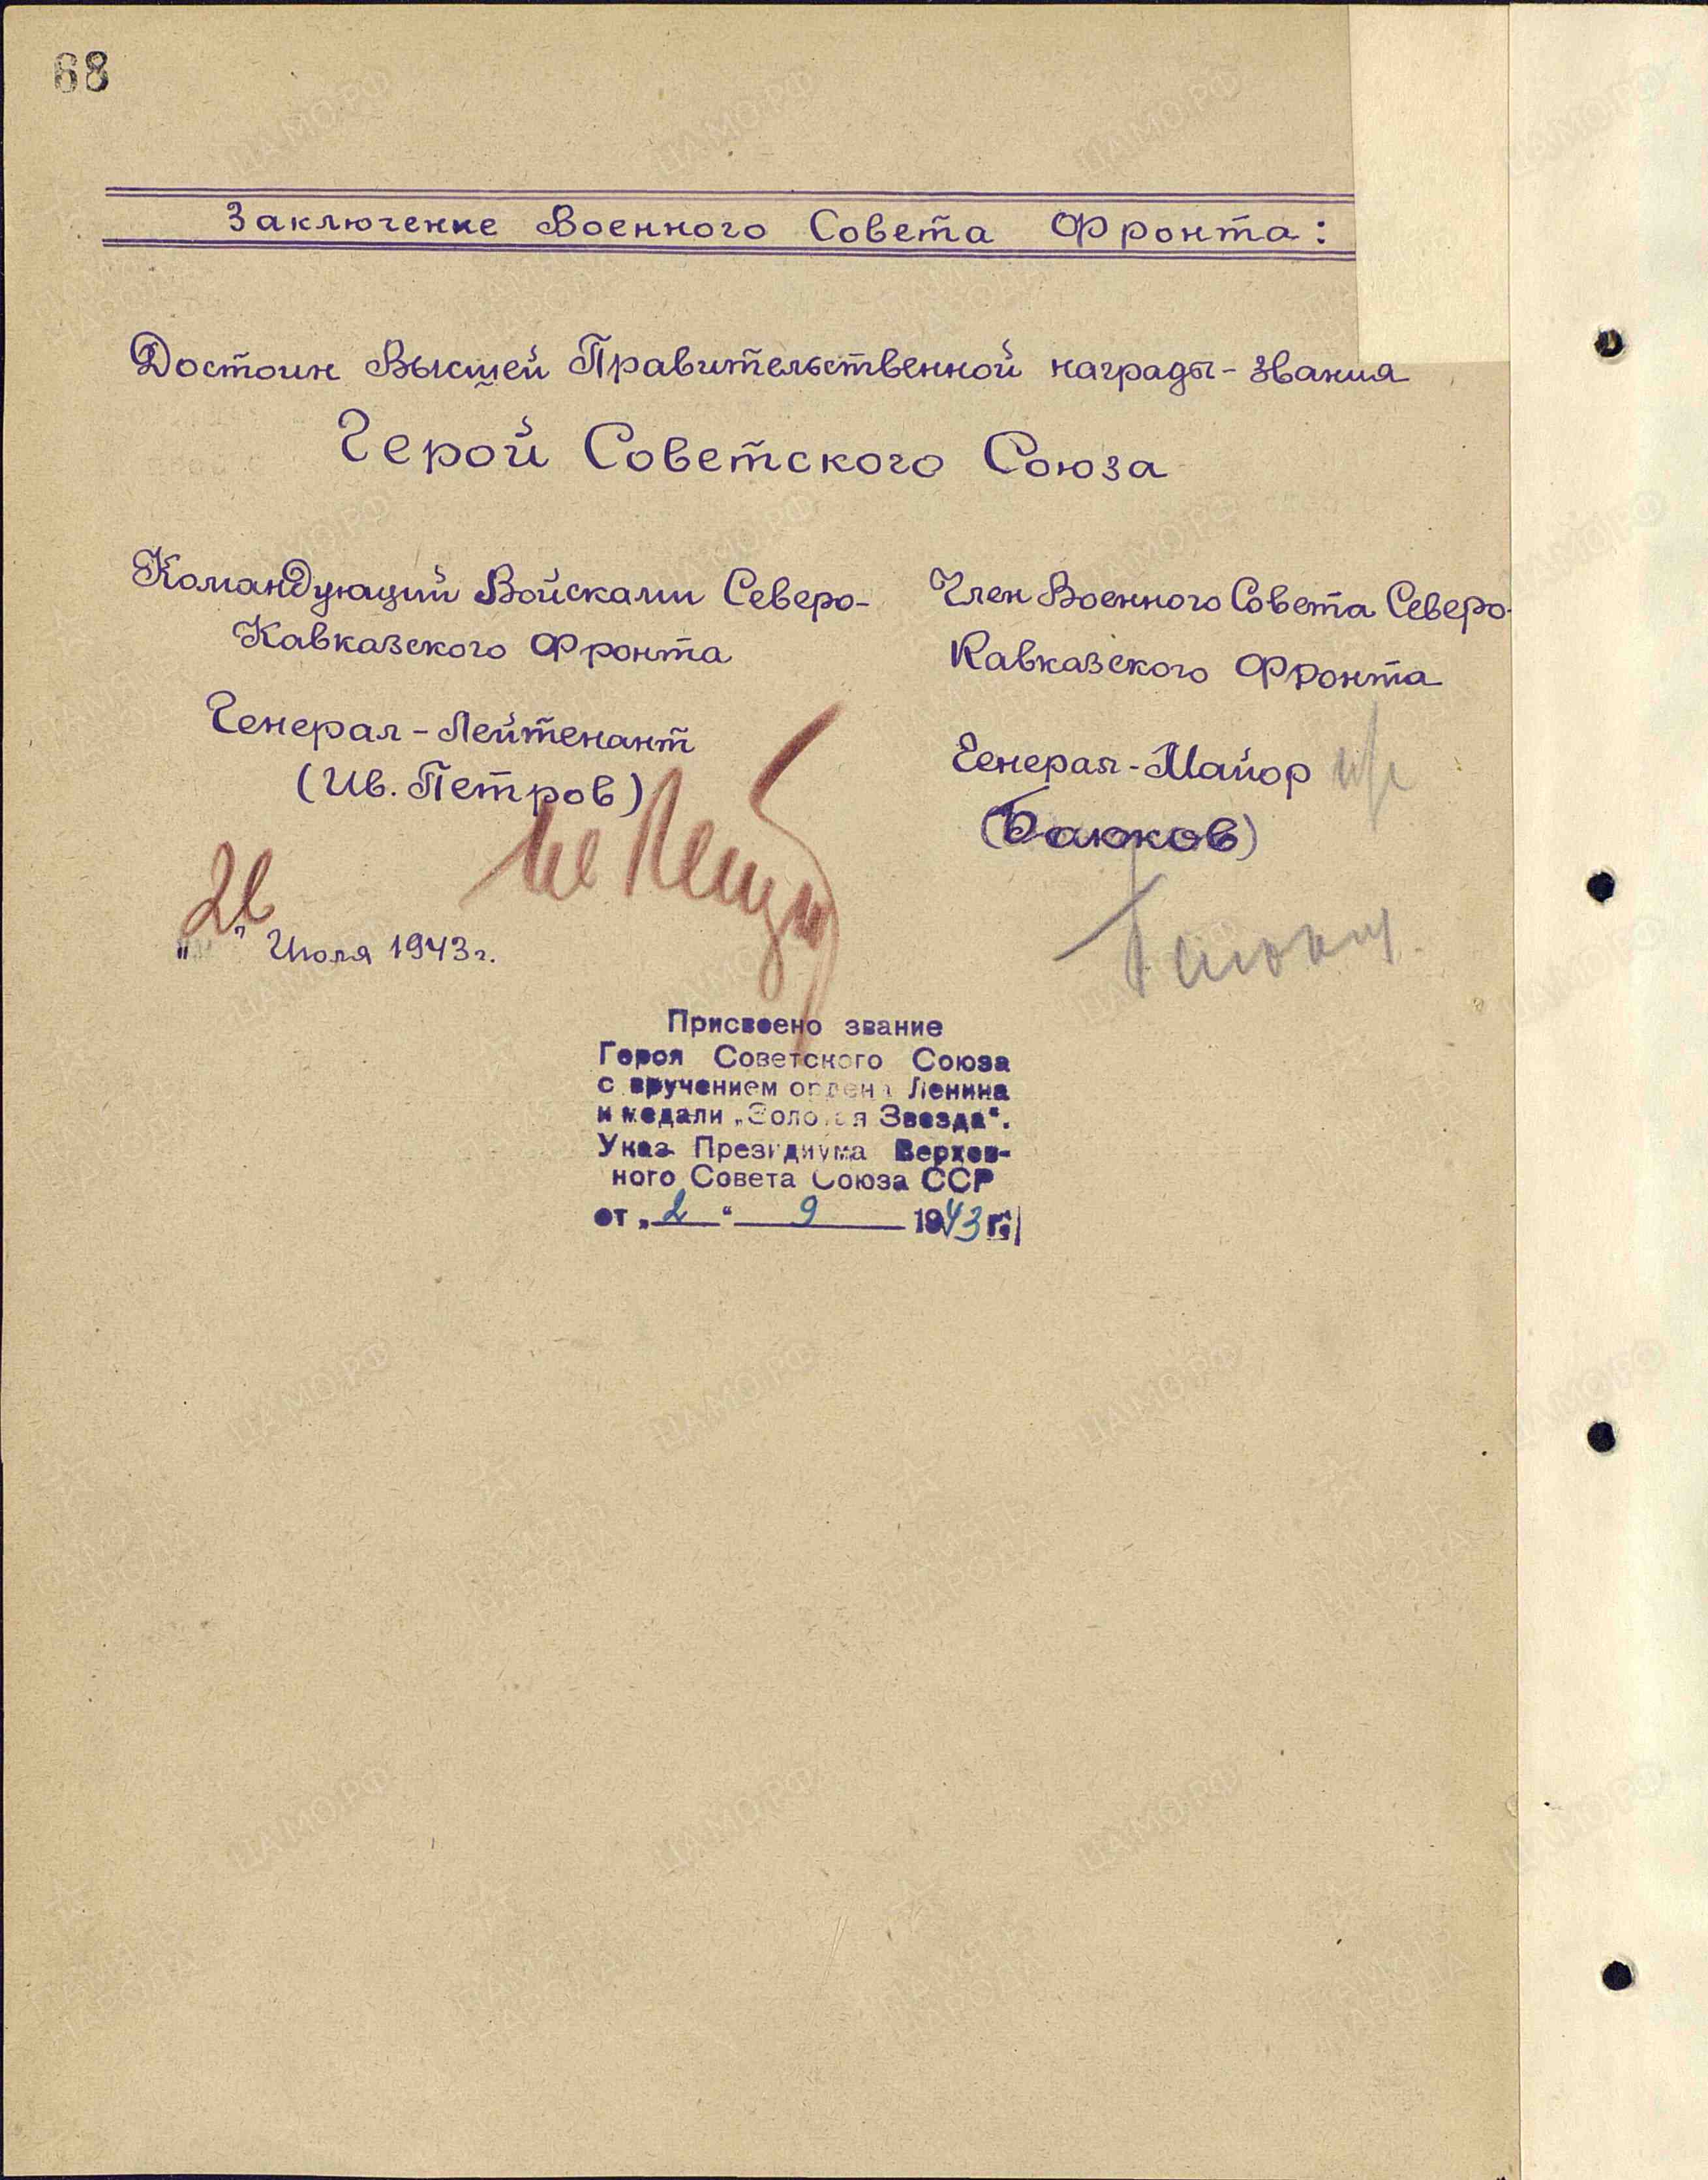 68
Заключение Военного Совета Фронта:
Достоин Высшей Правительственной награды - звания
Герой Советского Союза
Командующий Войсками Северо-
Кавказского Фронта
Генерал-Лейтенант
(Ив. Петров)
Ив Петров
"21" Июля 1943г.
Член Военного Совета Северо-
Кавказского Фронта
Генерал-Майор
(Баюков)
Баюков
Присвоено звание
Героя Советского Союза
с вручением ордена Ленина
и медали „Золотая Звезда".
Указ Президиума Верхов-
ного Совета Союза ССР
от „2" 9 1943 г.